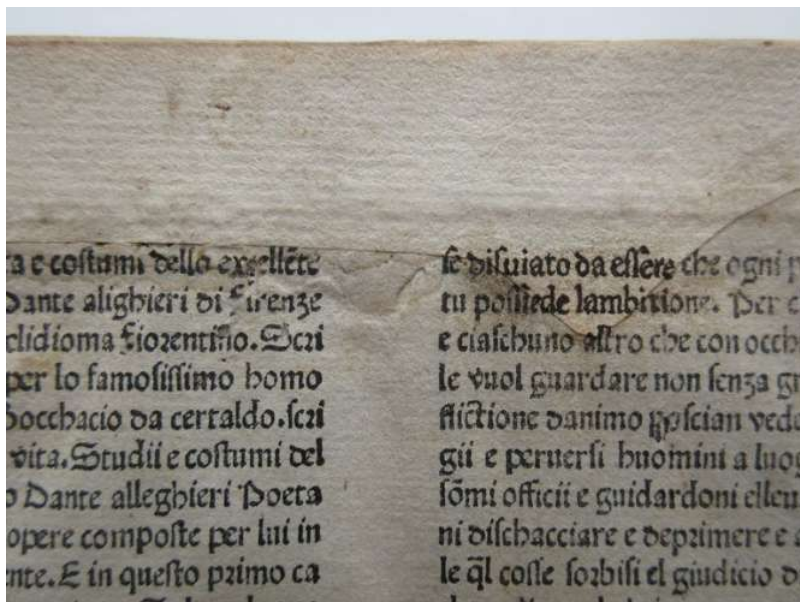 a e costumi dello excellēte
Dante alighieri di firenze
clidioma fiorentino. Scri
per lo famosissimo homo
bocchacio da certaldo. scri
vita. Studii e costumi del
o Dante alleghieri Poeta
opere composte per lui in
nte. E in questo primo ca
se disuiato da essere che ogni
tu possiede lambitione. Per
e ciaschuno altro che con occh
le vuol guardare non senza
flictione danimo possian
gii e peruersi huomini a
sōmi officii e guidardoni elleu
ni dischacciare e deprimere e
le q̄l cosse sorbisi el giudicio